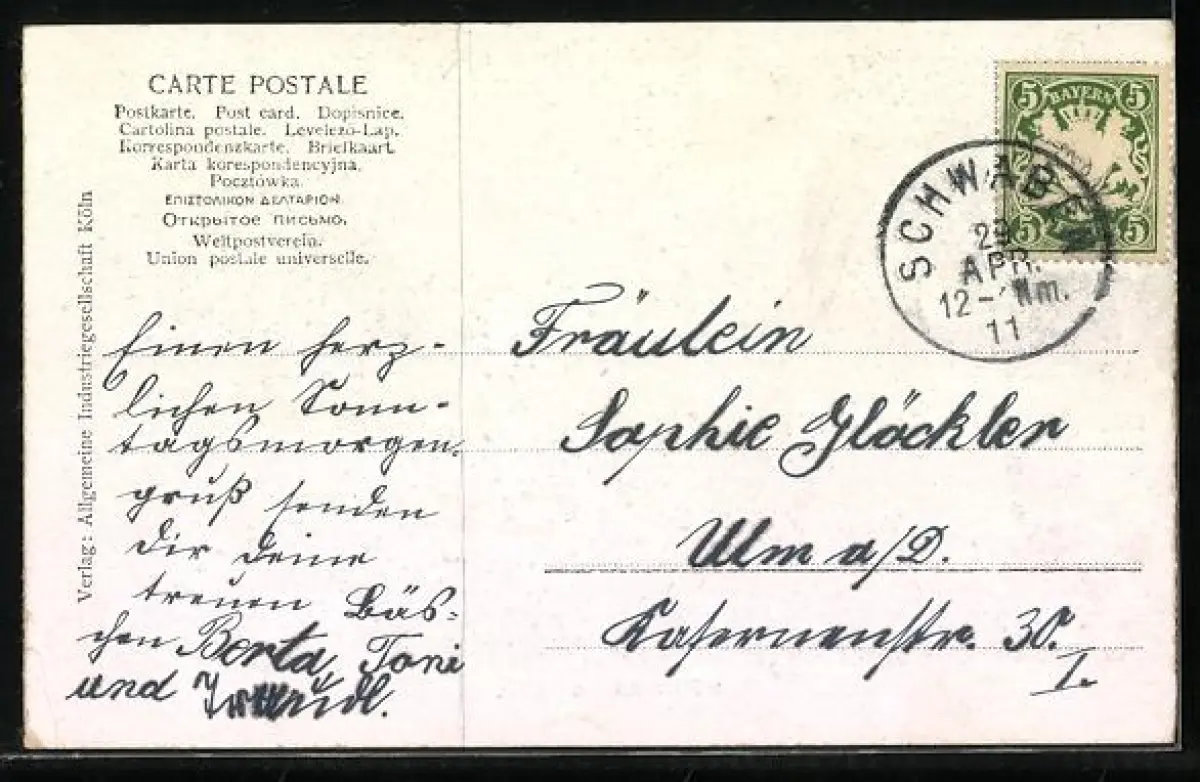 CARTE POSTALE
Postkarte. Post card. Dopisnice.
Cartolina postale. Levelezo-Lap.
Korrespondenzkarte. Briefkaart.
Karta korespondencyjna.
Pocztówka.
ΕΠΙΣΤΟΛΙΚΟΝ ΔΕΛΤΑΡΙΟΝ.
Открытое письмо.
Weltpostverein.
Union postale universelle.
Verlag: Allgemeine Industriegesellschaft Köln
Einen herz-
lichen Sonn-
tagsmorgen-
gruß senden
dir deine
treuen Bäs-
chen Berta, Toni
und
5 BAYERN 5
5 5
SCHWABEN
29
APR.
12-1 Nm.
11
Fräulein
Sophie Glöckler
Ulm a/D.
Kasernenstr. 30.
I.